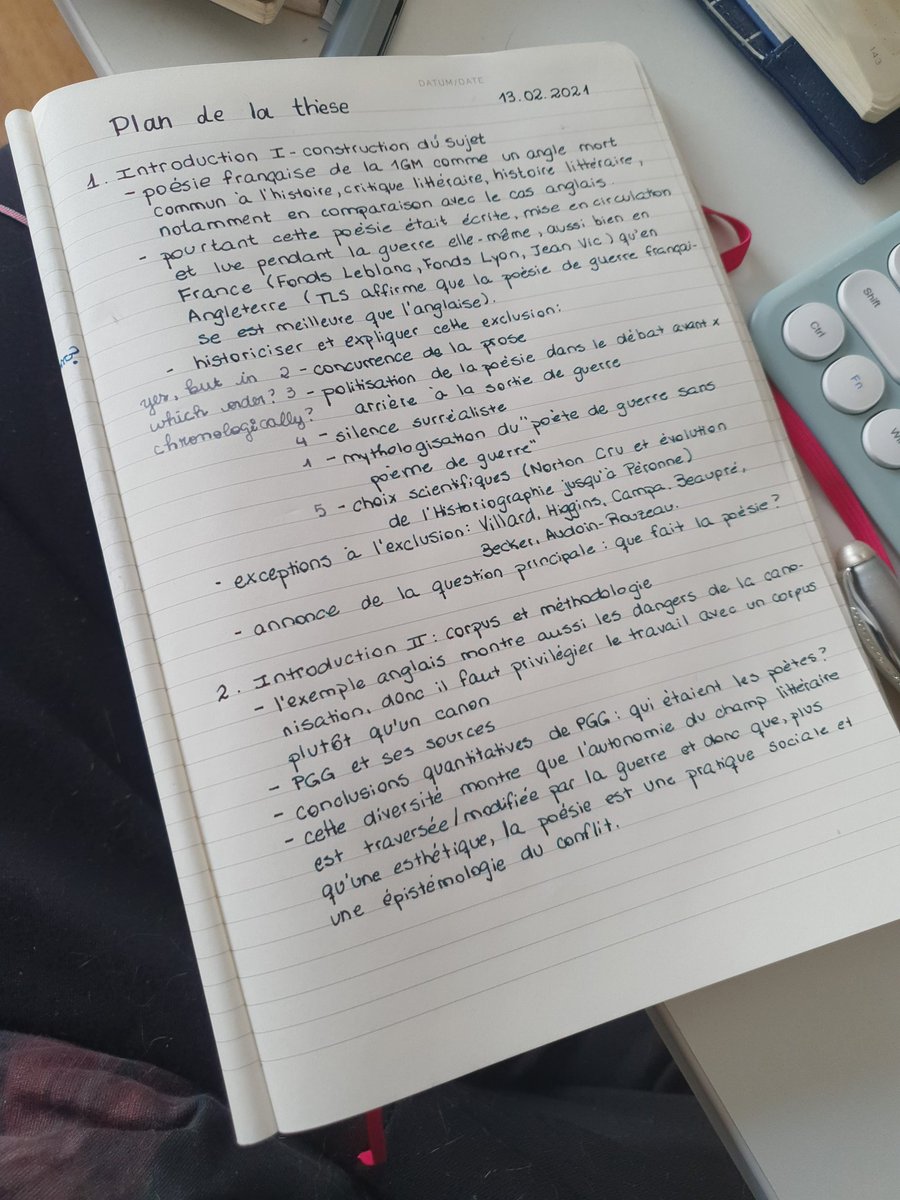 DATUM/DATE
Plan de la thèse 13.02.2021
1. Introduction I - construction du sujet
- poésie française de la 1GM comme un angle mort
commun à l'histoire, critique littéraire, histoire littéraire,
notamment en comparaison avec le cas anglais.
- pourtant cette poésie était écrite, mise en circulation
et lue pendant la guerre elle-même, aussi bien en
France (Fonds Leblanc, Fonds Lyon, Jean Vic) qu'en
Angleterre (TLS affirme que la poésie de guerre françai-
se est meilleure que l'anglaise).
- historiciser et expliquer cette exclusion:
yes, but in
which order?
chronologically?
2 - concurrence de la prose
3 - politisation de la poésie dans le débat avant x
arrière à la sortie de guerre
4 - silence surréaliste
1 - mythologisation du "poète de guerre sans
poème de guerre"
5 - choix scientifiques (Norton Cru et évolution
de l'Historiographie jusqu'à Péronne)
- exceptions à l'exclusion: Villard, Higgins, Campa, Beaupré,
Becker, Audoin-Rouzeau.
- annonce de la question principale: que fait la poésie?
2. Introduction II: corpus et méthodologie
- l'exemple anglais montre aussi les dangers de la cano-
nisation, donc il faut privilégier le travail avec un corpus
plutôt qu'un canon
- PGG et ses sources
- conclusions quantitatives de PGG: qui étaient les poètes?
- cette diversité montre que l'autonomie du champ littéraire
est traversée/modifiée par la guerre et donc que, plus
qu'une esthétique, la poésie est une pratique sociale et
une épistémologie du conflit.
Ctrl
Shift
Fn
143